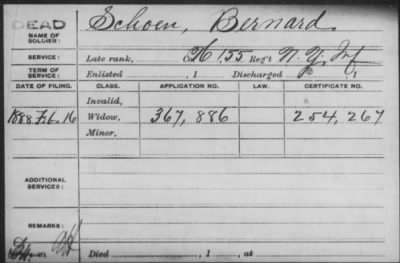 DEAD Schoen, Bernard
NAME OF SOLDIER:
SERVICE: Late rank, Co. H 155 Reg't N. Y. Inf
TERM OF SERVICE: Enlisted , 1 Discharged , 1
DATE OF FILING. CLASS. APPLICATION NO. LAW. CERTIFICATE NO.
Invalid,
1888 Feb. 16 Widow, 367,886 254,267
Minor,
ADDITIONAL SERVICES:
REMARKS:
Died , 1 , at